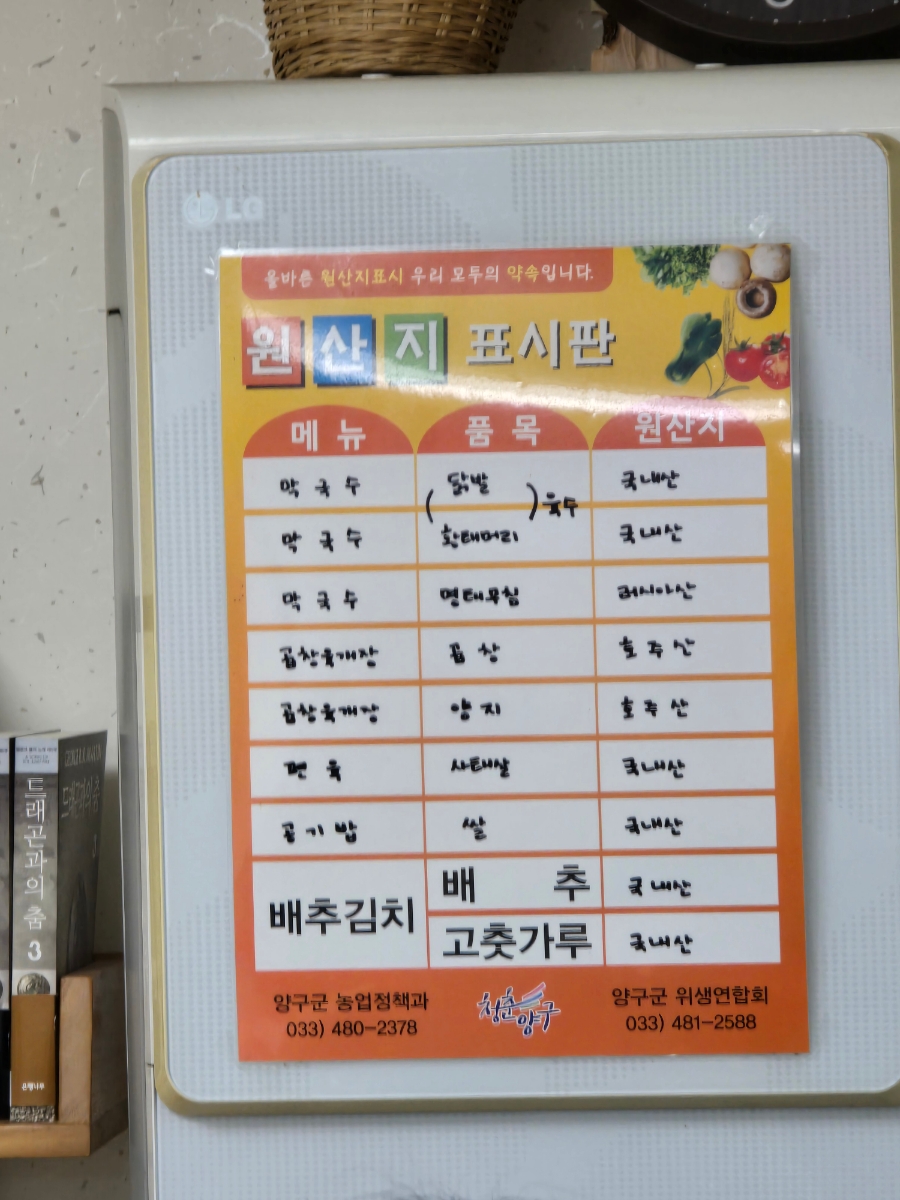 LG
올바른 원산지표시 우리 모두의 약속입니다.
원산지 표시판
메뉴 품목 원산지
막국수 (닭발 국내산
막국수 황태머리)육수 국내산
막국수 명태무침 러시아산
곱창육개장 곱창 호주산
곱창육개장 양지 호주산
편육 사태살 국내산
공기밥 쌀 국내산
배추김치 배추 국내산
고춧가루 국내산
양구군 농업정책과
033) 480-2378
청춘양구
양구군 위생연합회
033) 481-2588
드래곤과의 춤 3
은행나무